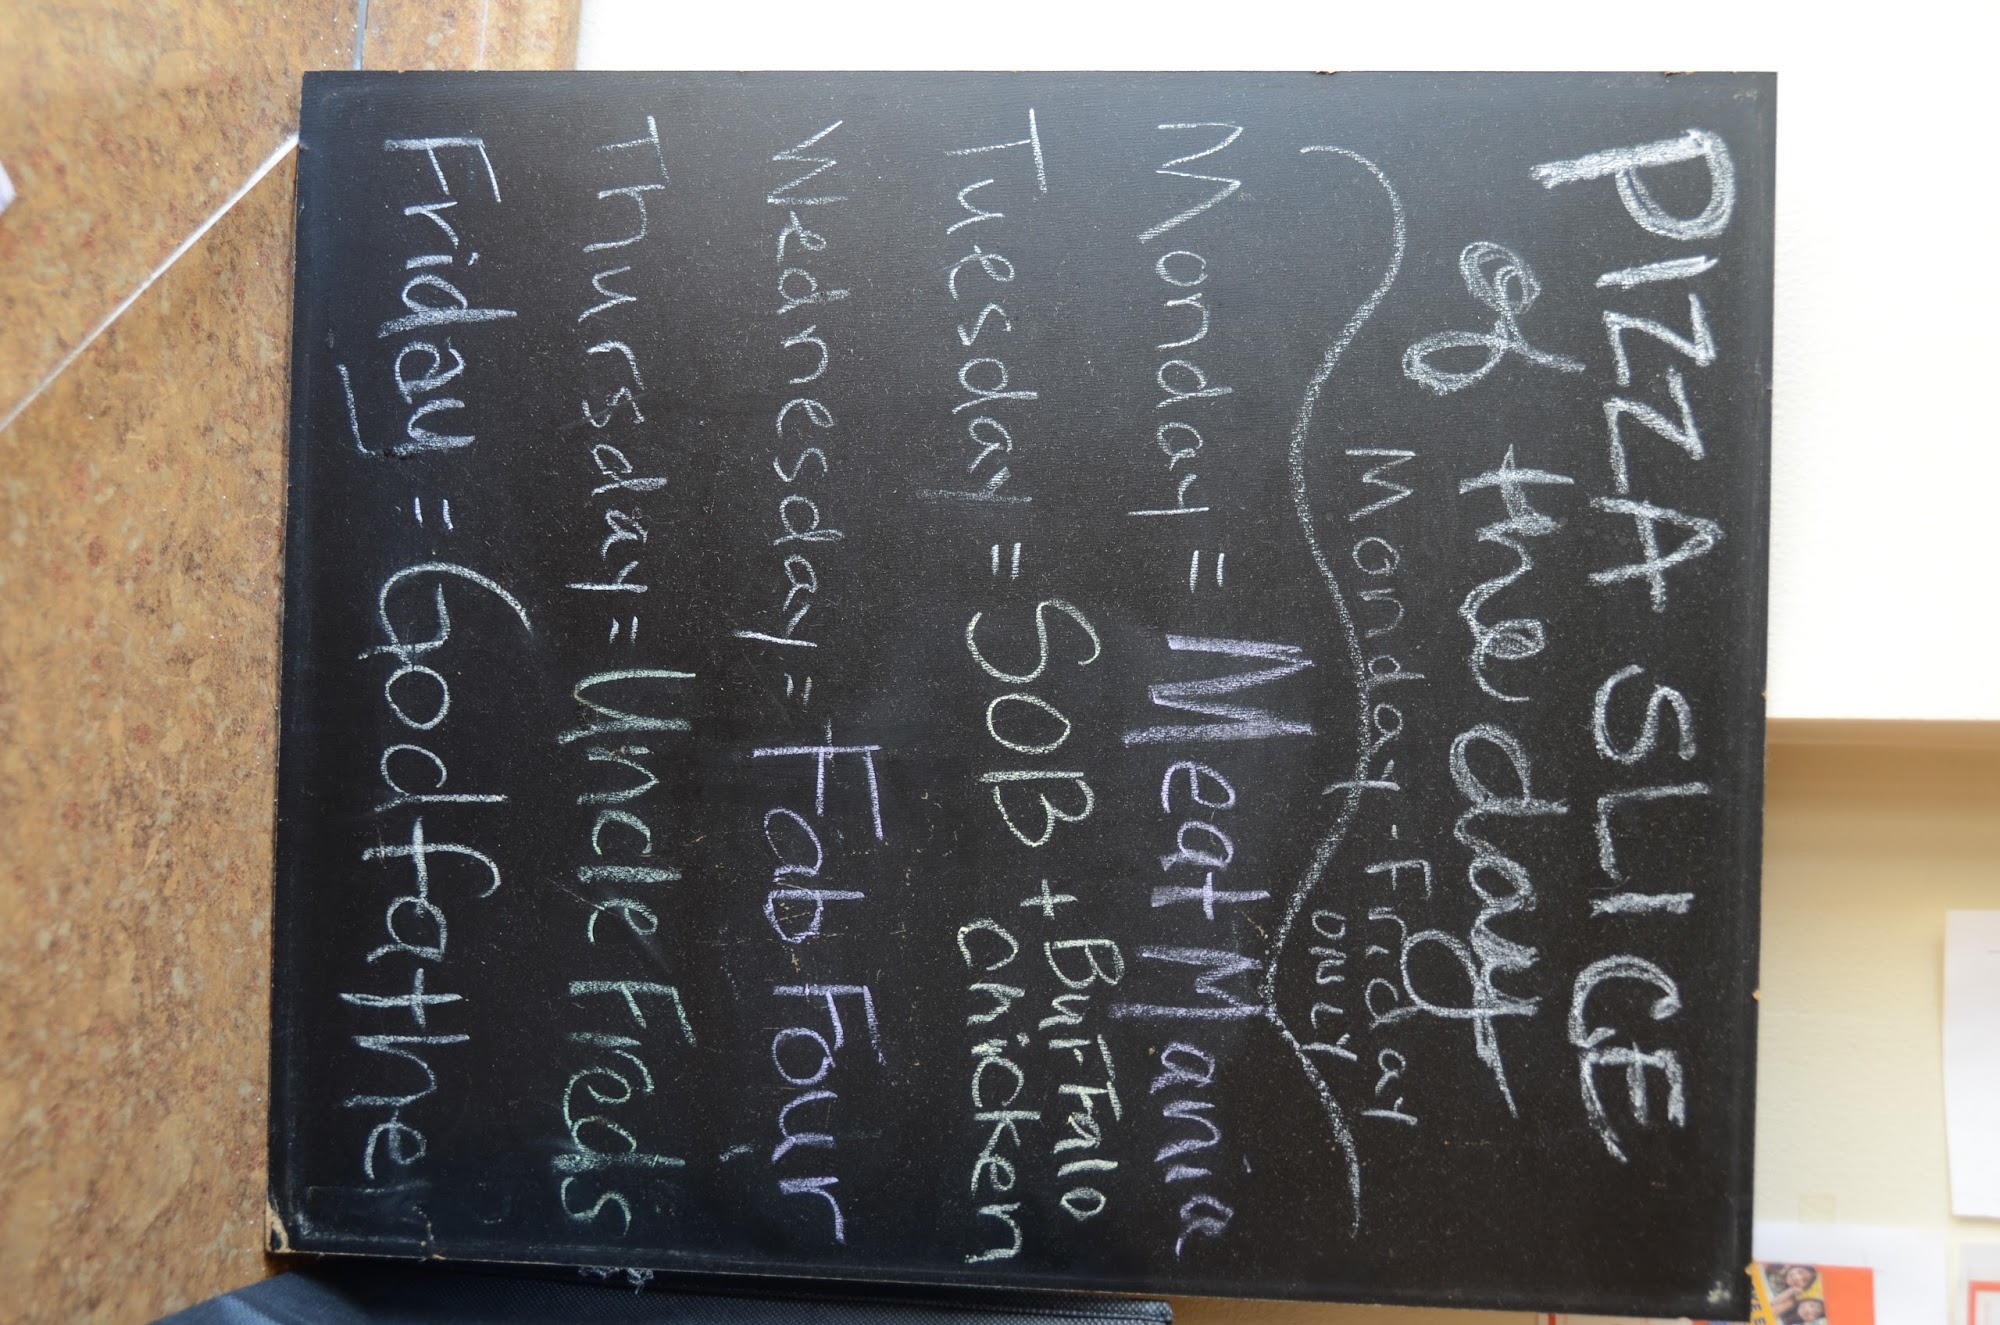 PIZZA SLICE
of the day
Monday - Friday
ONLY
Monday = Meat Mania
Tuesday = SOB + Buffalo
chicken
Wednesday = Fab Four
Thursday = Uncle Freds
Friday = Godfathe